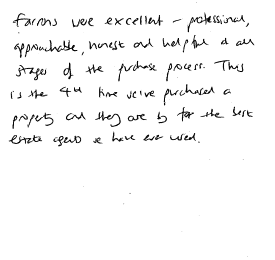 Farrons were excellent - professional,
approachable, honest and helpful at all
stages of the purchase process. This
is the 4th time we've purchased a
property and they are by far the best
estate agents we have ever used.